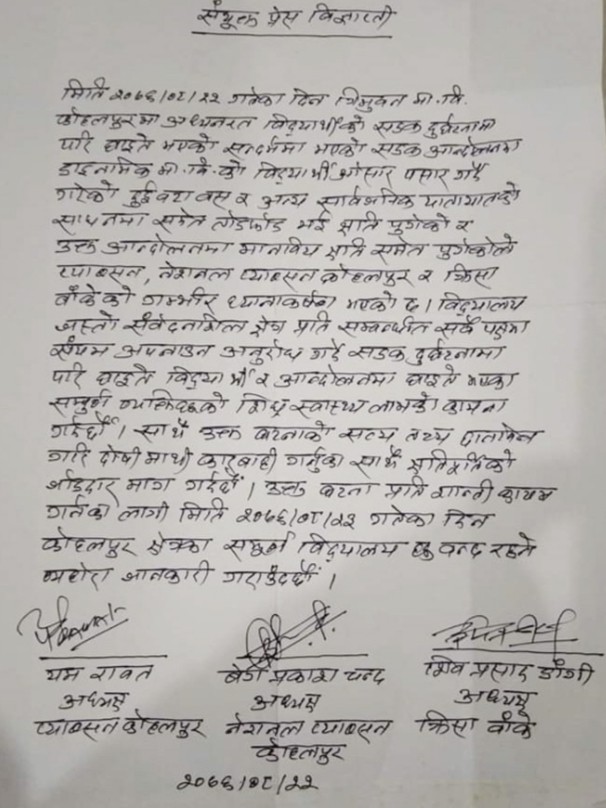 संयुक्त प्रेस विज्ञप्ती
मिति २०७६/०८/२२ गतेका दिन त्रिभुवन मा.वि.
कोहलपुरमा अध्यनरत विद्यार्थीको सडक दुर्घटनामा
परि घाइते भएको सन्दर्भमा भएको सडक आन्दोलनमा
डाइनामिक मा.वि.को विद्यार्थी ओसार पसार गर्दै
गरेको दुईवटा बस र अन्य सार्वजनिक यातायातको
साधनमा समेत तोडफोड भई क्षति पुगेको र
उक्त आन्दोलनमा मानविय क्षति समेत पुगेकोले
प्याब्सन, नेशनल प्याब्सन कोहलपुर र क्रिसा
बाँकेको गम्भीर ध्यानाकर्षण भएको छ। विद्यालय
जस्तो संवेदनशिल क्षेत्र प्रति सम्बन्धीत सबै पक्षमा
संयम अपनाउन अनुरोध गर्दै सडक दुर्घटनामा
परि घाइते विद्यार्थी र आन्दोलनमा घाइते भएका
सम्पुर्ण व्यक्तिहरुको शिघ्र स्वास्थ्य लाभको कामना
गर्दछौँ। साथै उक्त घटनाको सत्य तथ्य छानविन
गरि दोषी माथी कारबाही गर्नुका साथै क्षतिपुर्तिको
जोडदार माग गर्दछौँ। उक्त घटना प्रति शान्ती कायम
गर्नका लागी मिति २०७६/०८/२३ गतेका दिन
कोहलपुर क्षेत्रका सम्पुर्ण विद्यालय हरु बन्द रहने
व्यहोरा जानकारी गराउँदछौँ।
यम रावत बेग प्रकाश चन्द शिव प्रसाद डाँगी
अध्यक्ष अध्यक्ष अध्यक्ष
प्याब्सन कोहलपुर नेशनल प्याब्सन क्रिसा बाँके
कोहलपुर
२०७६/०८/२२